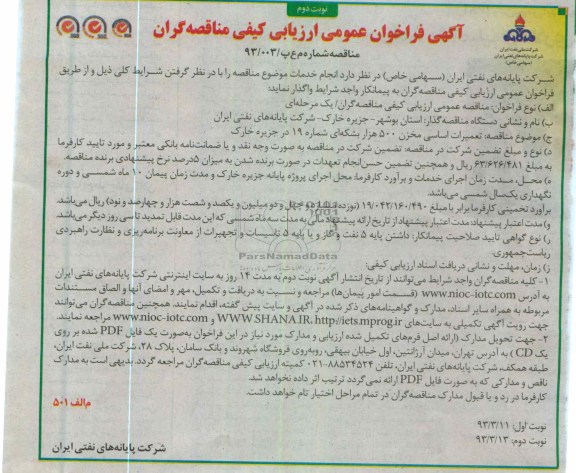 نوبت دوم
آگهی فراخوان عمومی ارزیابی کیفی مناقصه‌گران
مناقصه شماره م‌ع‌پ/۹۳/۰۰۳
شرکت ملی نفت ایران
شرکت پایانه‌های نفتی ایران
(سهامی خاص)
شرکت پایانه‌های نفتی ایران (سهامی خاص) در نظر دارد انجام خدمات موضوع مناقصه را با در نظر گرفتن شرایط کلی ذیل و از طریق
فراخوان عمومی ارزیابی کیفی مناقصه‌گران به پیمانکار واجد شرایط واگذار نماید:
الف) نوع فراخوان: مناقصه عمومی ارزیابی کیفی مناقصه‌گران/ یک مرحله‌ای
ب) نام و نشانی دستگاه مناقصه‌گذار: استان بوشهر- جزیره خارک- شرکت پایانه‌های نفتی ایران
ج) موضوع مناقصه: تعمیرات اساسی مخزن ۵۰۰ هزار بشکه‌ای شماره ۱۹ در جزیره خارک
د) نوع و مبلغ تضمین شرکت در مناقصه: تضمین شرکت در مناقصه به صورت وجه نقد و یا ضمانت‌نامه بانکی معتبر و مورد تایید کارفرما
به مبلغ ۶۳/۶۲۶/۴۸۱ ریال و همچنین تضمین حسن‌انجام تعهدات در صورت برنده شدن به میزان ۵درصد نرخ پیشنهادی برنده مناقصه.
ه) محل، مدت زمان اجرای خدمات و برآورد کارفرما: محل اجرای پروژه پایانه جزیره خارک و مدت زمان پیمان ۱۰ ماه شمسی و دوره
نگهداری یکسال شمسی می‌باشد.
برآورد تخمینی کارفرما برابر با مبلغ ۱۹/۰۴۲/۱۶۰/۴۹۰ (نوزده میلیارد و چهل و دو میلیون و یکصد و شصت هزار و چهارصد و نود) ریال می‌باشد.
و) مدت اعتبار پیشنهاد: مدت اعتبار پیشنهاد از تاریخ ارائه پیشنهاد مالی به مدت سه ماه شمسی که این مدت قابل تمدید تا سی روز دیگر می‌باشد
ر) نوع گواهی تایید صلاحیت پیمانکار: داشتن پایه ۵ نفت و گاز و یا پایه ۵ تاسیسات و تجهیزات از معاونت برنامه‌ریزی و نظارت راهبردی
ریاست‌جمهوری.
ز) زمان، مهلت و نشانی دریافت اسناد ارزیابی کیفی:
۱- کلیه مناقصه‌گران واجد شرایط می‌توانند از تاریخ انتشار آگهی نوبت دوم به مدت ۱۴ روز به سایت اینترنتی شرکت پایانه‌های نفتی ایران
به آدرس www.nioc-iotc.com (قسمت امور پیمان‌ها) مراجعه و نسبت به دریافت و تکمیل، مهر و امضای آنها و الصاق مستندات
مربوطه به همراه سایر اسناد، مدارک و گواهینامه‌های ذکر شده در آگهی و سایت پیش گفته، اقدام نمایند. همچنین مناقصه‌گران می‌توانند
جهت رویت آگهی تکمیلی به سایت‌های WWW.SHANA.IR، http//iets.mprog.ir و www.nioc-iotc.com مراجعه نمایند.
۲- جهت تحویل مدارک (ارائه اصل فرم‌های تکمیل شده ارزیابی و مدارک مورد نیاز در این فراخوان به‌صورت یک فایل PDF شده بر روی
یک CD) به آدرس تهران، میدان آرژانتین، اول خیابان بیهقی، روبه‌روی فروشگاه شهروند و بانک سامان، پلاک ۲۸، شرکت ملی نفت ایران،
طبقه همکف، شرکت پایانه‌های نفتی ایران، تلفن ۸۸۵۳۴۵۳۴-۰۲۱ کمیته ارزیابی کیفی مناقصه‌گران مراجعه گردد. بدیهی است به مدارک
ناقص و مدارکی که به صورت فایل PDF ارائه نمی‌گردد ترتیب اثر داده نخواهد شد.
کارفرما در رد و یا قبول مدارک مناقصه‌گران در تمام مراحل اختیار تام خواهد داشت.
م‌الف ۵۰۱
نوبت اول: ۹۳/۳/۱۱
نوبت دوم: ۹۳/۳/۱۳
شرکت پایانه‌های نفتی ایران
ParsNamadData